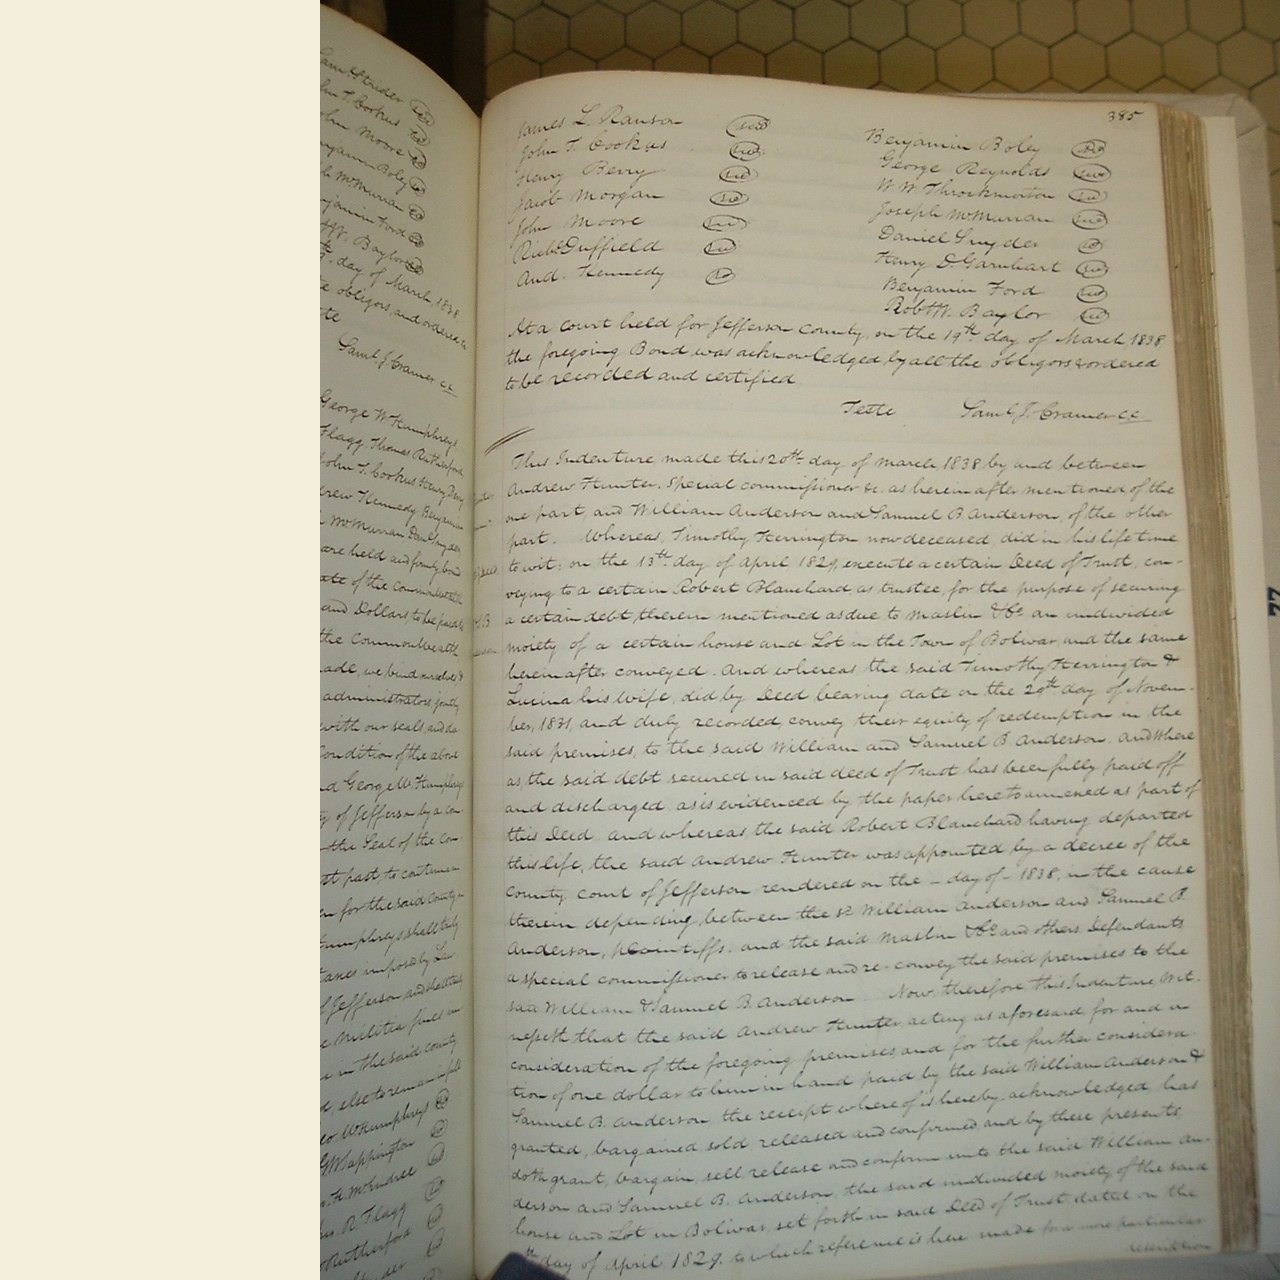 Saml Strider
John T. Cookus
John Moore
Benjamin Boley
McMurran
Benjamin Ford
W. Baylor
day of March, 1838
obligors, and ordered
Saml J. Cramer CC
George W Humphreys
Flagg Thomas Rutherford
John T. Cookus Henry Berry
Andrew Kennedy Benjamin
McMurran Danl Snyder
are held and firmly bound
state of the Commonwealth
and Dollars to be paid
the Commonwealth
made, we bind ourselves &
administrators jointly
with our seals, and da
Condition of the above
George W. Humphreys
of Jefferson by a Com
the Seal of the Co
past to continue
for the said County
Humphreys shall truly
taxes imposed by Law
of Jefferson and
Militia fines
in the said county
else to remain in full
Geo W Humphreys
G W Sappington
R. Flagg
Rutherford
385
James L. Ranson seal
John T. Cookus seal
Henry Berry seal
Jacob Morgan seal
John Moore seal
Richd Duffield seal
And. Kennedy seal
Benjamin Boley seal
George Reynolds seal
W W Throckmorton seal
Joseph McMurran seal
Daniel Snyder seal
Henry D. Garnhart seal
Benjamin Ford seal
Robt W. Baylor seal
At a court held for Jefferson County, on the 19th day of March 1838
the foregoing Bond was acknowledged by all the obligors & ordered
to be recorded and certified.
Teste Saml J. Cramer CC
This Indenture made this 20th day of March 1838 by and between
Andrew Hunter, Special commissioner &c. as herein after mentioned of the
one part, and William Anderson and Samuel B. Anderson, of the other
part. Whereas, Timothy Herrington now deceased did in his life time
to wit: on the 13th day of April 1829, execute a certain Deed of Trust, con-
veying to a certain Robert Blanchard as trustee, for the purpose of securing
a certain debt, therein mentioned as due to Maslin & Co. an undivided
moiety of a certain house and Lot in the Town of Bolivar, and the same
herein after conveyed. And whereas, the said Timothy Herrington &
Lucina his wife, did by Deed bearing date on the 29th day of Novem-
ber, 1831, and duly recorded, convey their equity of redemption in the
said premises, to the said William and Samuel B. Anderson. And Where
as, the said debt secured in said deed of Trust has been fully paid off
and discharged, as is evidenced by the paper hereto annexed as part of
this Deed, and whereas the said Robert Blanchard having departed
this life, the said Andrew Hunter was appointed by a decree of the
County court of Jefferson rendered on the – day of – 1838, in the cause
therein depending, between the sd William Anderson and Samuel B.
Anderson, plaintiffs, and the said Maslin & Co. and others Defendants
a special commissioner to release and re-convey the said premises to the
said William & Samuel B. Anderson. Now, therefore this Indenture, Wit-
nesseth that the said Andrew Hunter acting as aforesaid for and in
consideration of the foregoing premises, and for the further considera
tion of one dollar to him in hand paid by the said William Anderson &
Samuel B. Anderson the receipt whereof is hereby acknowledged, has
granted, bargained sold released and confirmed and by these presents,
doth grant, bargain, sell, release and confirm unto the said William An-
derson and Samuel B. Anderson, the said undivided moiety of the said
house and Lot in Bolivar, set forth in said Deed of Trust dated on the
th day of April 1829. to which reference is here made for a more particular
description